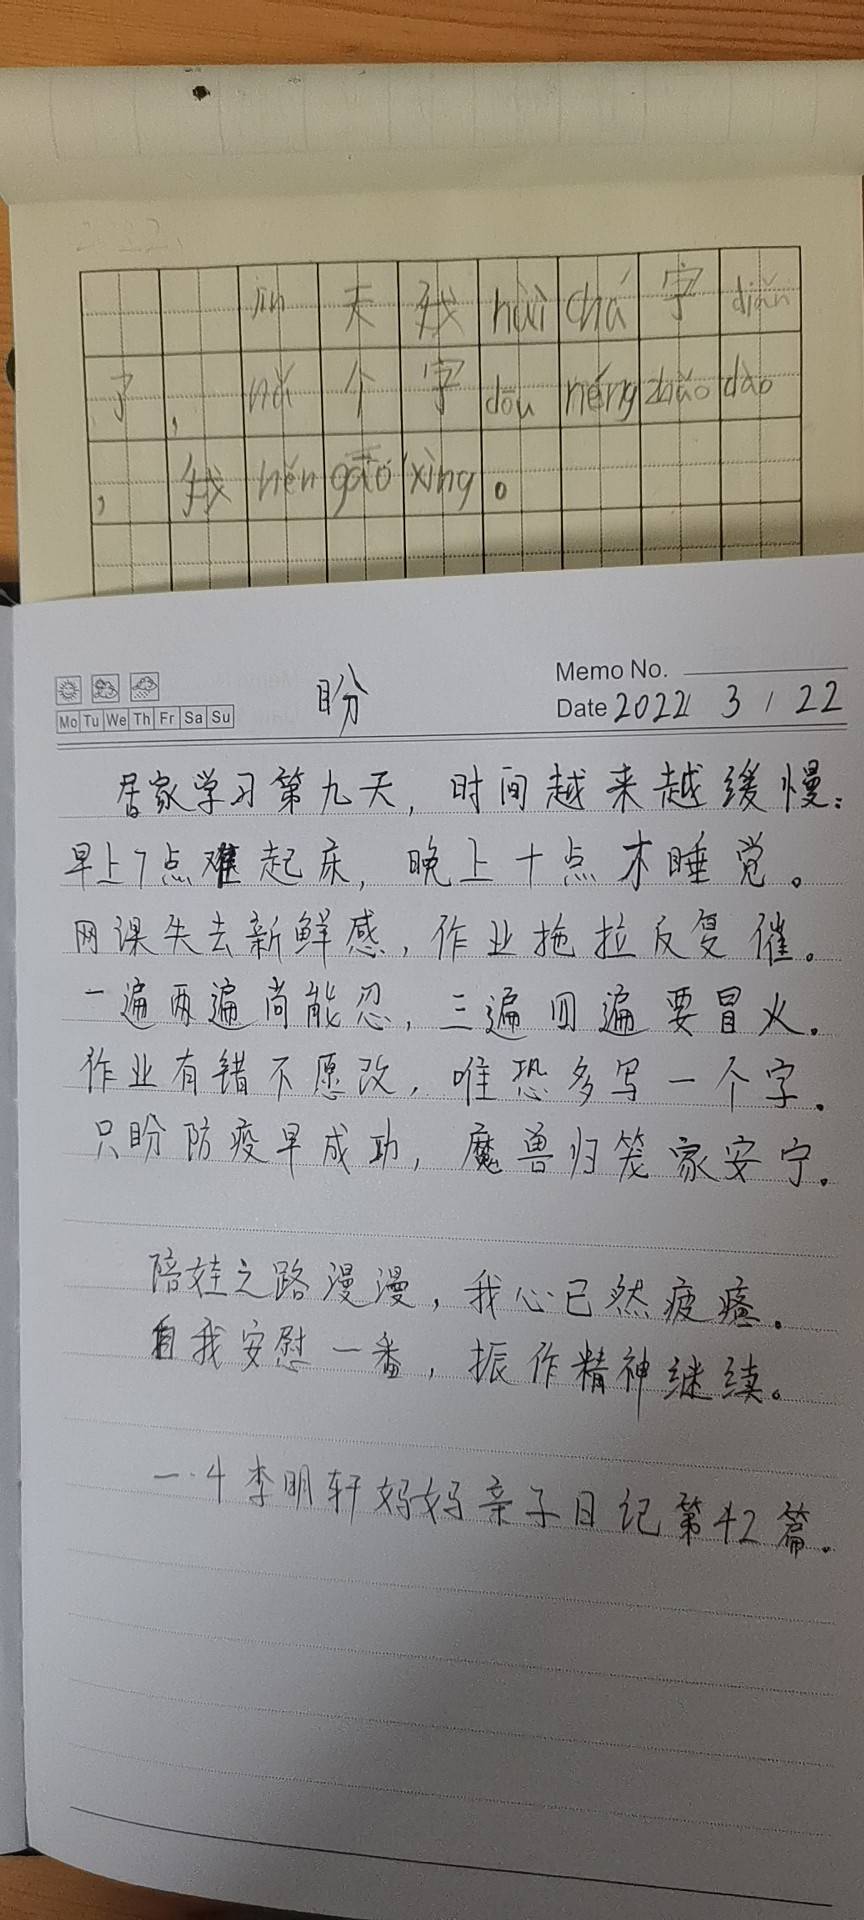 2022.
jīn 天 我 huì chá 字 diǎn
了，nǎ 个 字 dōu néng zhǎo dào
，我 hěn gāo xìng。
盼
Memo No.
Mo Tu We Th Fr Sa Su
Date 2022 3 / 22
居家学习第九天，时间越来越缓慢：
早上7点难起床，晚上十点才睡觉。
网课失去新鲜感，作业拖拉反复催。
一遍两遍尚能忍，三遍四遍要冒火。
作业有错不愿改，唯恐多写一个字。
只盼防疫早成功，魔兽归笼家安宁。
陪娃之路漫漫，我心已然疲惫。
自我安慰一番，振作精神继续。
一.4李明轩妈妈亲子日记第42篇。